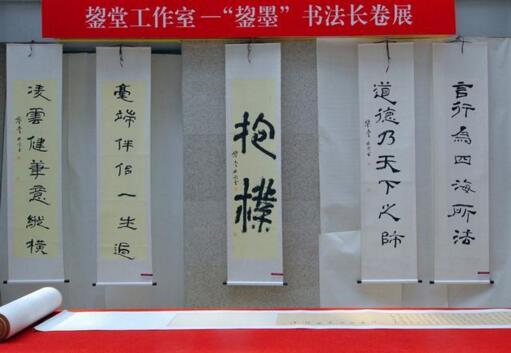 鋆堂工作室—“鋆墨”书法长卷展
言行為四海所法
道德乃天下之師
抱樸
毫端伴侶一生過
凌雲健筆意縱橫